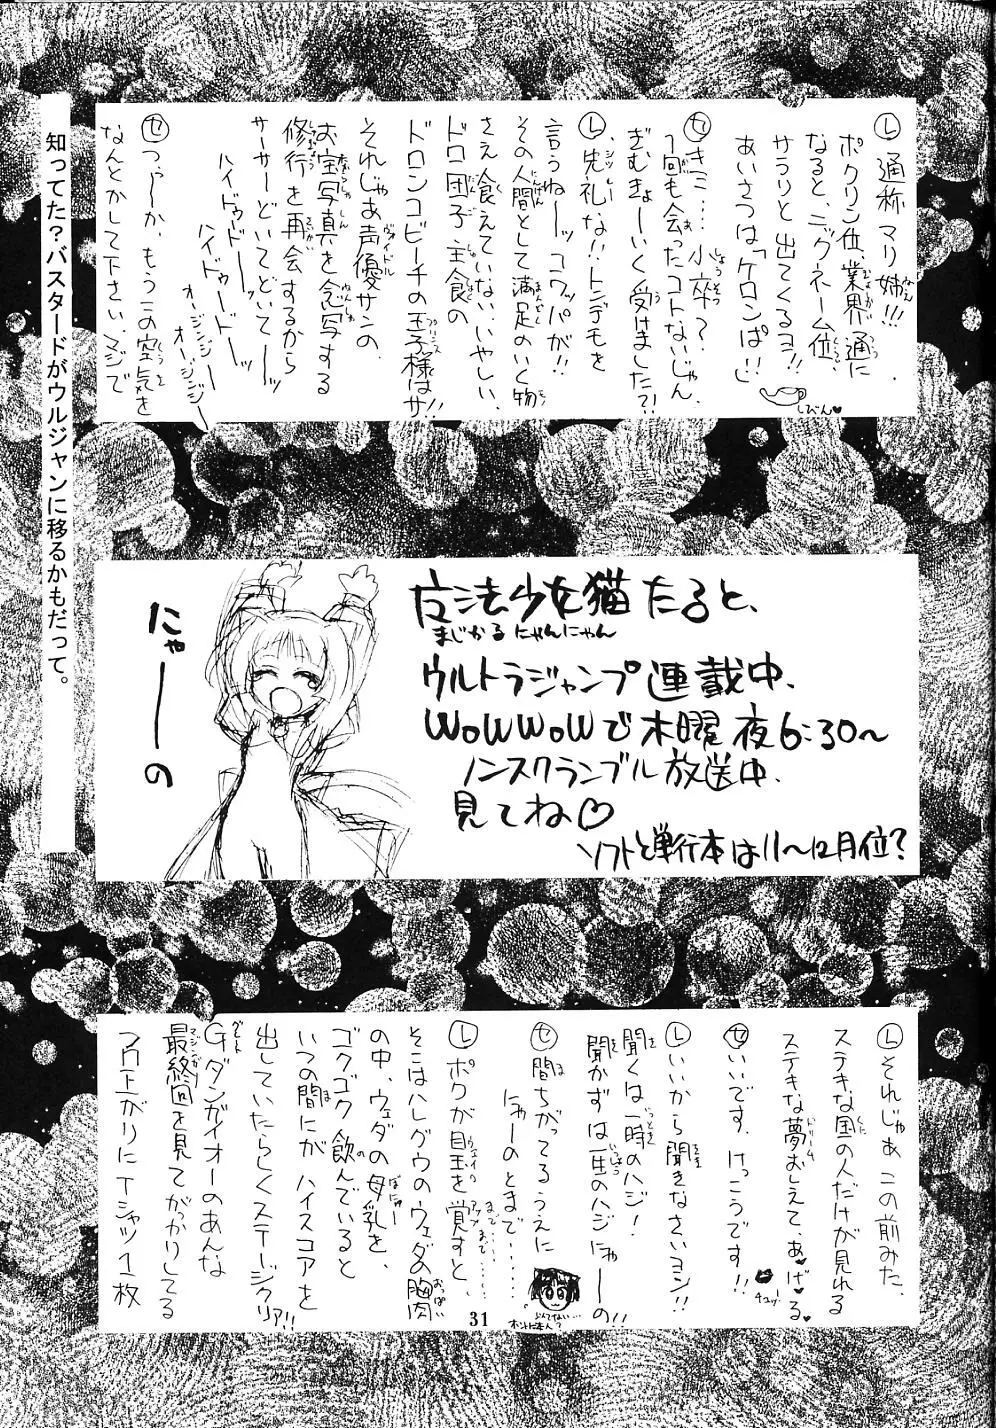 Ⓛ通称マリ姉!!!
ポクリン位業界通に
なると、ニックネーム位、
サラリと出てくるヨ!!
あいさつは「ケロンぱ!!」
しびん♥
Ⓣき…小卒?
1回も会ったコトないじゃん
ぎむきょーいく受けました?!
Ⓛ失礼な!!トンデモを
言うねーッコワッパが!!
その人間として満足のいく物
さえ食えていない、いやしい、
ドロ団子主食の
ドロンコビーチの王子様はサ!!
それじゃあ声優サンの、
お宝写真を念写する
修行を再会するから
サーサーどいてどいてーッ
ハイドゥードードーッ
ハイドゥードードー
オージンジー
オージンジー
Ⓣつぅーか、もうこの空気を
なんとかして下さい、マジで
知ってた?バスタードがウルジャンに移るかもだって。
にゃーの
魔法少女猫たると、
まじかるにゃんにゃん
ウルトラジャンプ連載中、
WOWWOWで木曜夜6:30～
ノンスクランブル放送中、
見てね♡
ソフトと単行本は11～12月位?
Ⓛそれじゃあこの前みた、
ステキな国の人だけが見れる
ステキな夢おしえて、あ♥げ♥る♥
チュッ!
Ⓣいいです、けっこうです!!
Ⓛいいから聞きなさいヨン!!
聞くは一時のハジ!
聞かずは一生のハジにゃーの!!
Ⓣ間ちがってるうえに
にゃーのとまで……
Ⓛポクが目玉を覚すと、
そこはハレグウのウェダの胸肉
の中、ウェダの母乳を、
ゴクゴク飲んでいると
いつの間にがハイスコアを
出していたらしくステージクリア!!
Gダンガイオーのあんな
最終回を見てがかりしてる
フロ上がりにTシャツ1枚
31